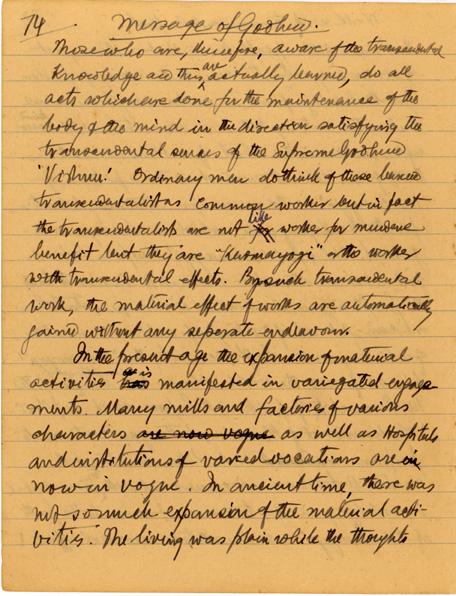 74. Message of Godhead.
Those who are, therefore, aware of the transcendental
Knowledge and thus are actually learned, do all
acts which are done for the maintenance of the
body & the mind in the direction satisfying the
transcendental senses of the Supreme Godhead
'Vishnu.' Ordinary men do think of these learned
transcendentalists common worker but in fact
the transcendentalists are not like worker for mundane
benefit but they are "Karmayogi" or the worker
with transcendental effects. By such transcendental
work, the material effect of works are automatically
gained without any seperate endeavour.
In the present age the expansion of material
activities is manifested in variegated engage-
ments. Many mills and factories of various
characters are now vogue as well as Hospitals
and institutions of varied vocations are in
now in vogue. In ancient time, there was
not so much expansion of the material acti-
vities. The living was plain while the thoughts